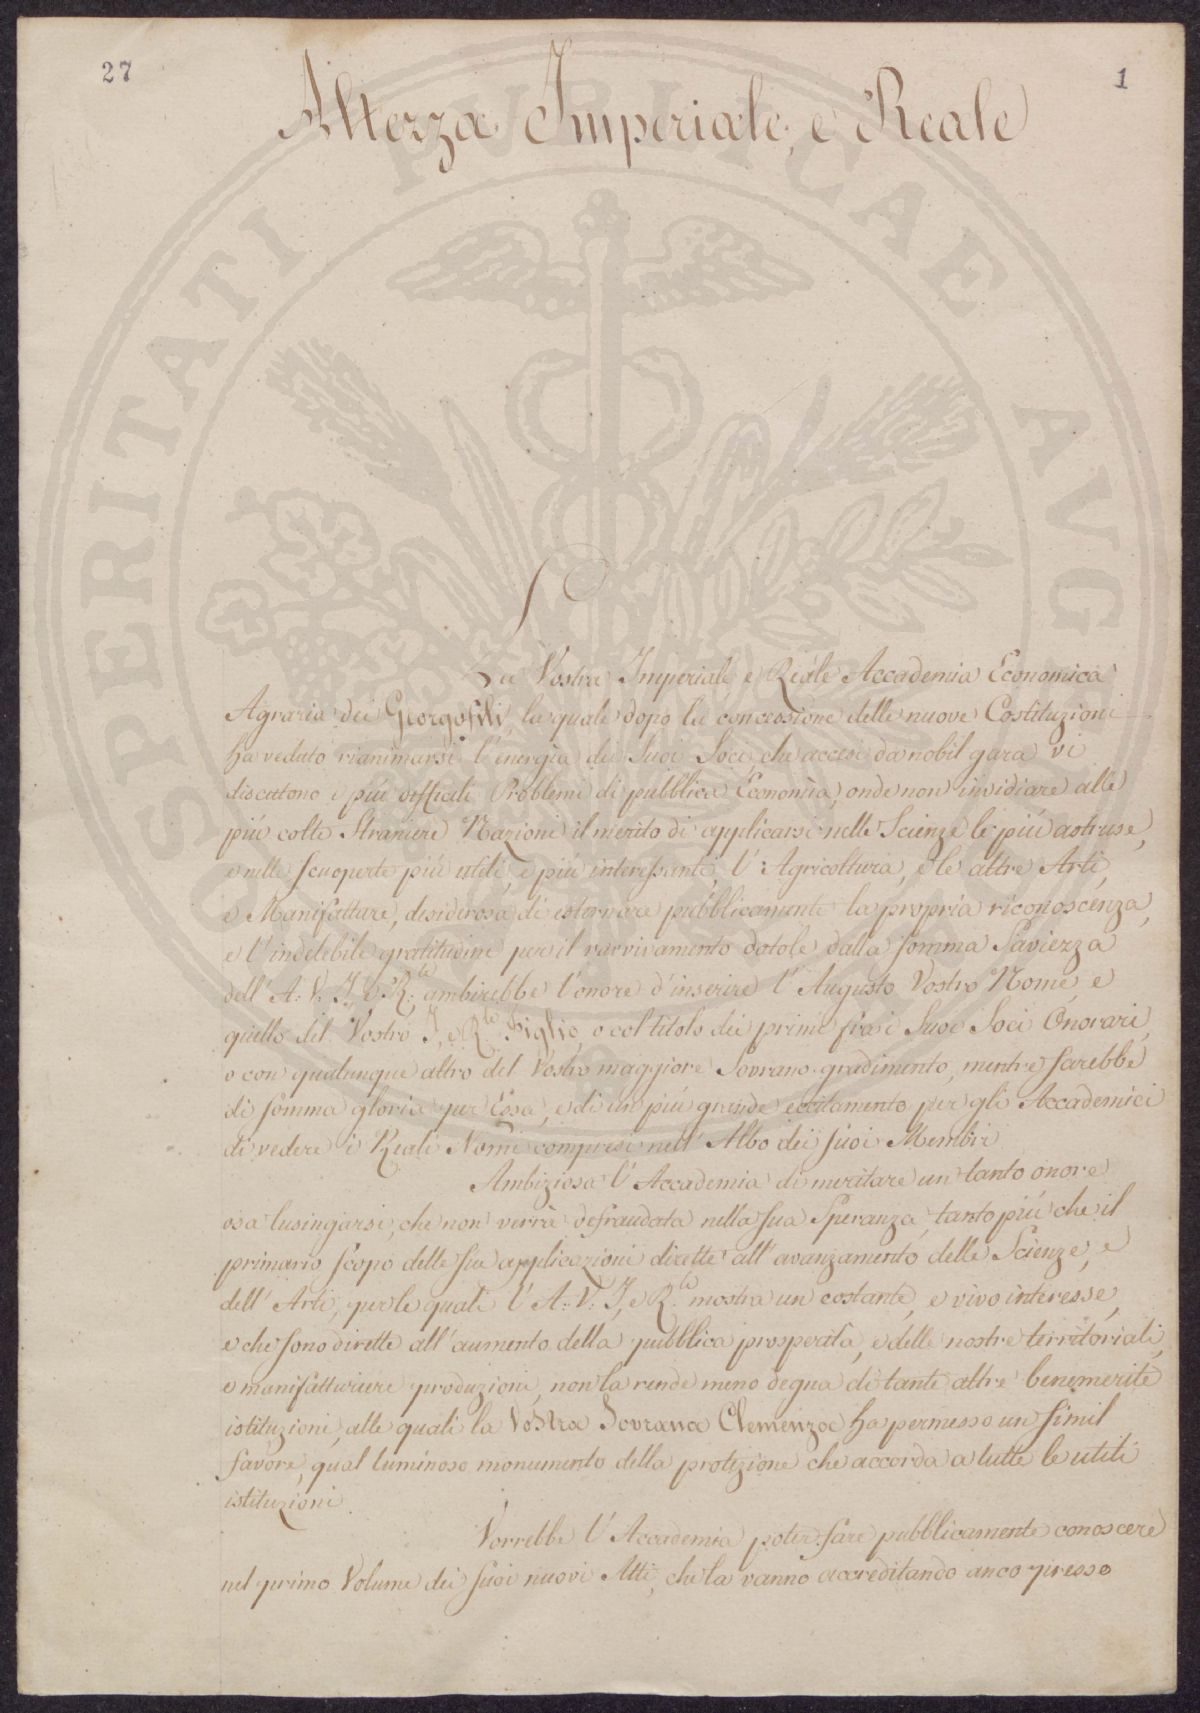 27
1
Altezza Imperiale, e Reale
La Vostra Imperiale, e Reale Accademia Economica
Agraria dei Georgofili, la quale dopo la concessione delle nuove Costituzioni
ha veduto rianimarsi l'energia dei Suoi Soci, che accesi da nobil gara vi
discutono i più difficili Problemi di pubblica Economia, onde non invidiare alle
più colte Straniere Nazioni il merito di applicarsi nelle Scienze le più astruse,
e nelle scuoperte più utili, e più interessanti, l'Agricoltura, e le altre Arti,
e Manifatture, desiderosa di esternare pubblicamente la propria riconoscenza,
e l'indelebile gratitudine per il ravvivamento datole dalla somma Saviezza
dell'A: V: I, e R.le ambirebbe l'onore d'inserire l'Augusto Vostro Nome, e
quello del Vostro I, e R.le Figlio, o col titolo dei primi fra i Suoi Soci Onorari,
o con qualunque altro del Vostro maggiore Sovrano gradimento, mentre sarebbe
di somma gloria per Essa, e di un più grande eccitamento per gli Accademici
di vedere i Reali Nomi compresi nell'Albo dei suoi Membri
Ambiziosa l'Accademia di meritare un tanto onore
osa lusingarsi, che non verrà defraudata nella sua Speranza, tanto più che il
primario scopo delle sue applicazioni dirette all'avanzamento delle Scienze, e
dell'Arti, per le quali l'A: V: I, e R.le mostra un costante, e vivo interesse,
e che sono dirette all'aumento della pubblica prosperità, e delle nostre territoriali,
e manifatturiere produzioni, non la rende meno degna di tante altre benemerite
istituzioni, alle quali la Vostra Sovrana Clemenza ha permesso un simil
favore, qual luminoso monumento della protezione che accorda a tutte le utili
istituzioni
Vorrebbe l'Accademia poter fare pubblicamente conoscere
nel primo Volume dei suoi nuovi Atti, che la vanno accreditando anco presso
PROSPERITATI PUBLICAE AVG